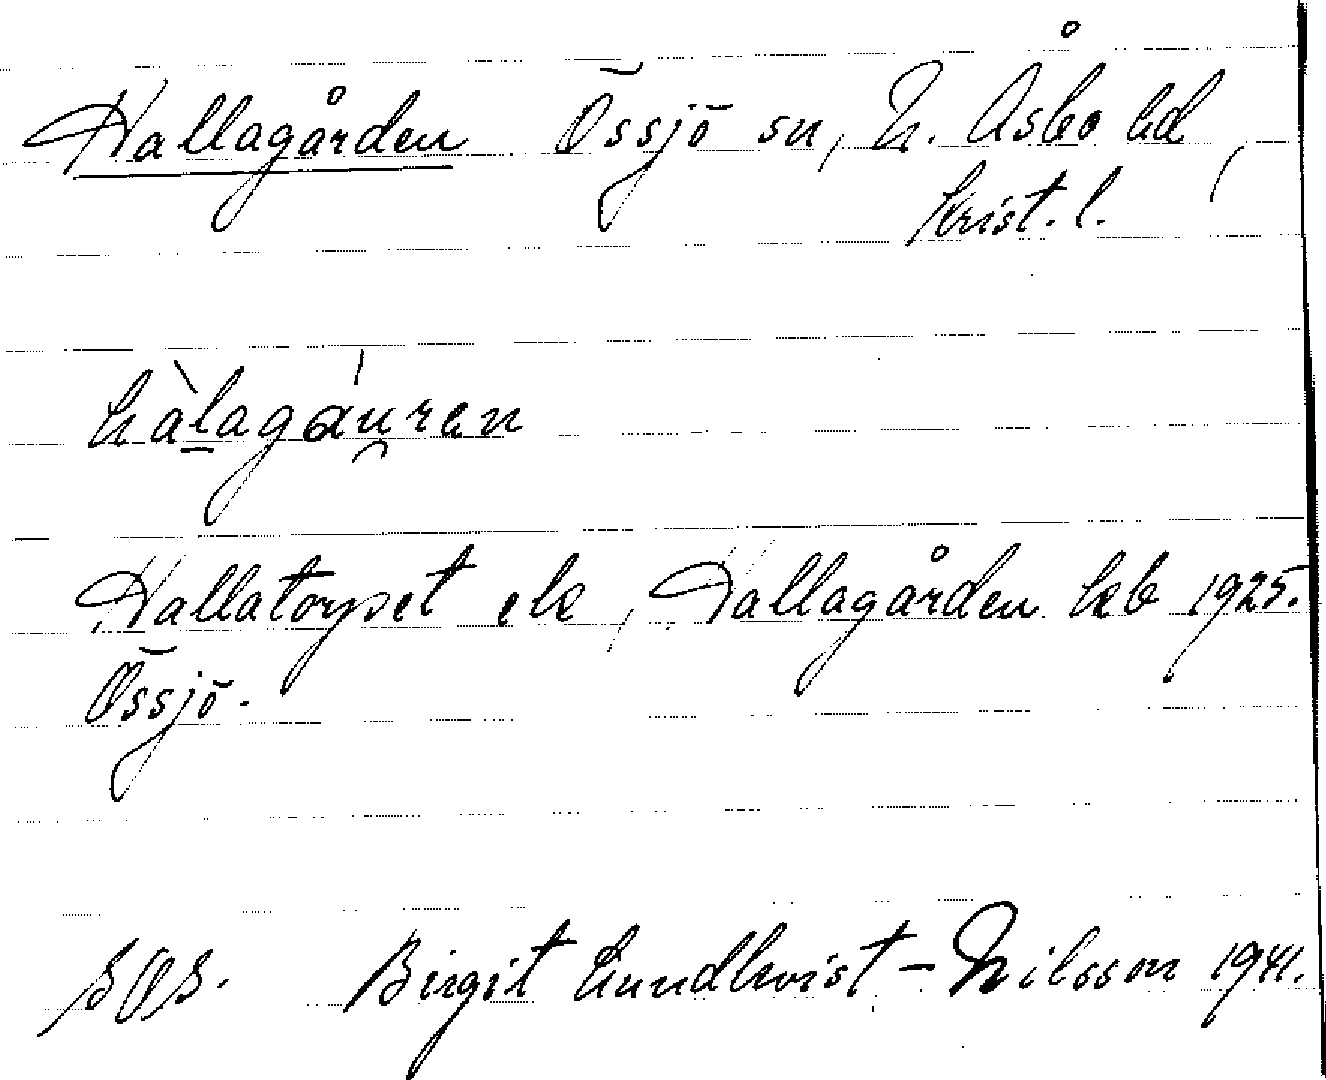 Hallagården Össjö sn, N. Åsbo hd,
Krist. l.
hàlagáuren
Hallatorpet ek, Hallagården kb 1925.
Össjö.
Birgit Lundkvist-Nilsson 1941.